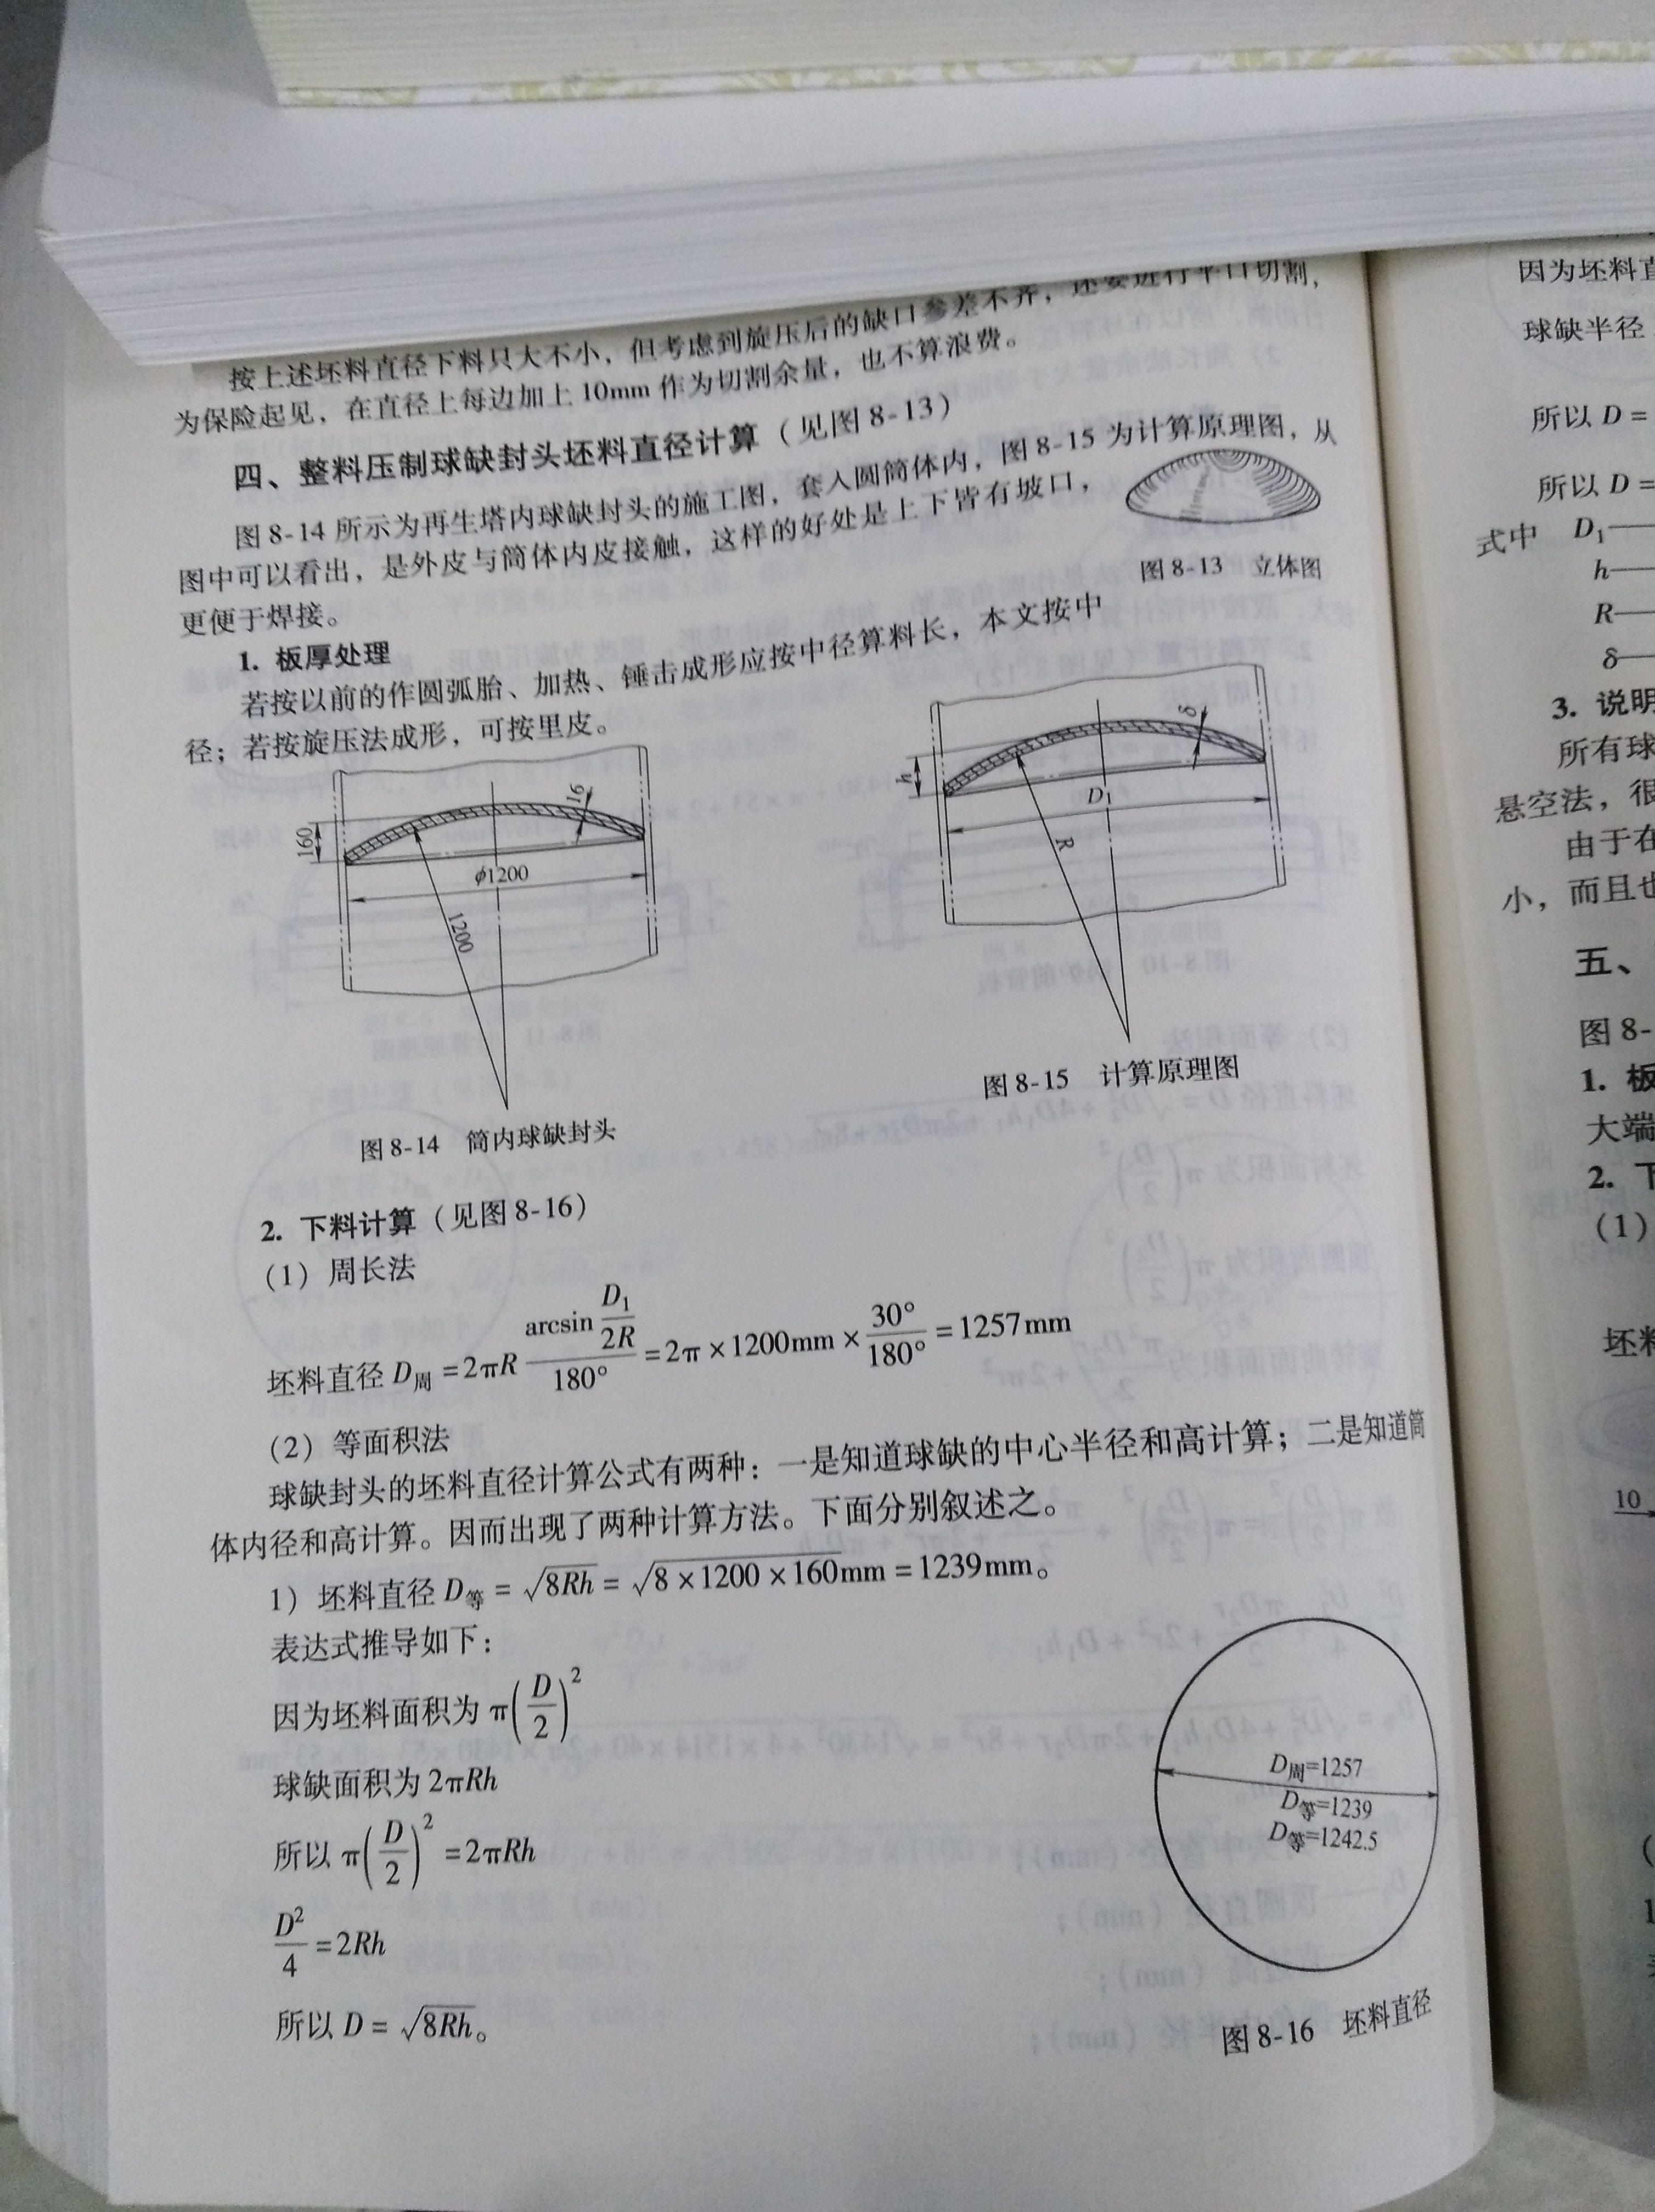 按上述坯料直径下料只大不小，但考虑到旋压后的缺口参差不齐，还要进行平口切割，
为保险起见，在直径上每边加上10mm作为切割余量，也不算浪费。
四、整料压制球缺封头坯料直径计算（见图8-13）
图8-14所示为再生塔内球缺封头的施工图，套入圆筒体内，图8-15为计算原理图，从
图中可以看出，是外皮与筒体内皮接触，这样的好处是上下皆有坡口，
更便于焊接。
图8-13 立体图
1. 板厚处理
若按以前的作圆弧胎、加热、锤击成形应按中径算料长，本文按中
径；若按旋压法成形，可按里皮。
160
16
φ1200
1200
图8-14 筒内球缺封头
h
δ
D₁
R
图8-15 计算原理图
2. 下料计算（见图8-16）
（1）周长法
坯料直径 D周 =2πR (arcsin D₁/2R)/180° =2π×1200mm×30°/180° =1257mm
（2）等面积法
球缺封头的坯料直径计算公式有两种：一是知道球缺的中心半径和高计算；二是知道筒
体内径和高计算。因而出现了两种计算方法。下面分别叙述之。
1）坯料直径 D等 = √8Rh = √8×1200×160mm = 1239mm。
表达式推导如下：
因为坯料面积为 π(D/2)²
球缺面积为 2πRh
所以 π(D/2)² =2πRh
D²/4 =2Rh
所以 D = √8Rh。
D周=1257
D等=1239
D等=1242.5
图8-16 坯料直径
因为坯料直
球缺半径
所以 D =
所以 D =
式中 D₁—
h—
R—
δ—
3. 说明
所有球
悬空法，很
由于在
小，而且也
五、
图8-
1. 板
大端
2. 下
（1）
坯料
10